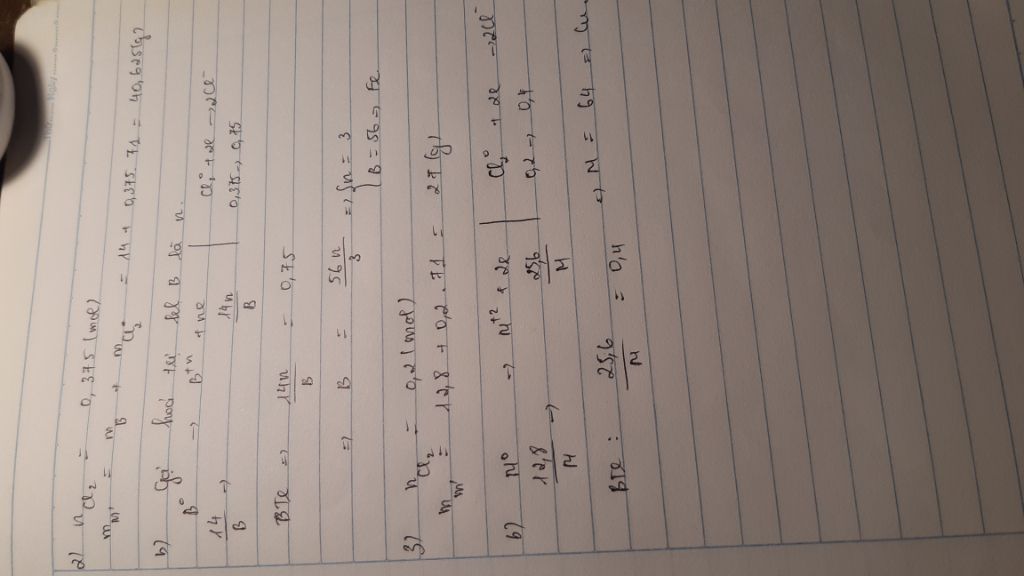 2) n Cl2 = 0,375 (mol)
m m' = m B + m Cl2 = 14 + 0,375.71 = 40,625 (g)
b) Gọi hoá trị kel B là n.
B⁰ → B⁺ⁿ + ne | Cl2⁰ + 2e → 2Cl⁻
14/B → 14n/B | 0,375 → 0,75
BTe ⇒ 14n/B = 0,75
⇒ B = 56n/3 ⇒ { n = 3
B = 56 ⇒ Fe
3) n Cl2 = 0,2 (mol)
m m' = 12,8 + 0,2.71 = 27 (g)
b) M⁰ → M⁺² + 2e | Cl2⁰ + 2e → 2Cl⁻
12,8/M → 25,6/M | 0,2 → 0,4
BTe : 25,6/M = 0,4 ⇒ M = 64 ⇒ Cu.